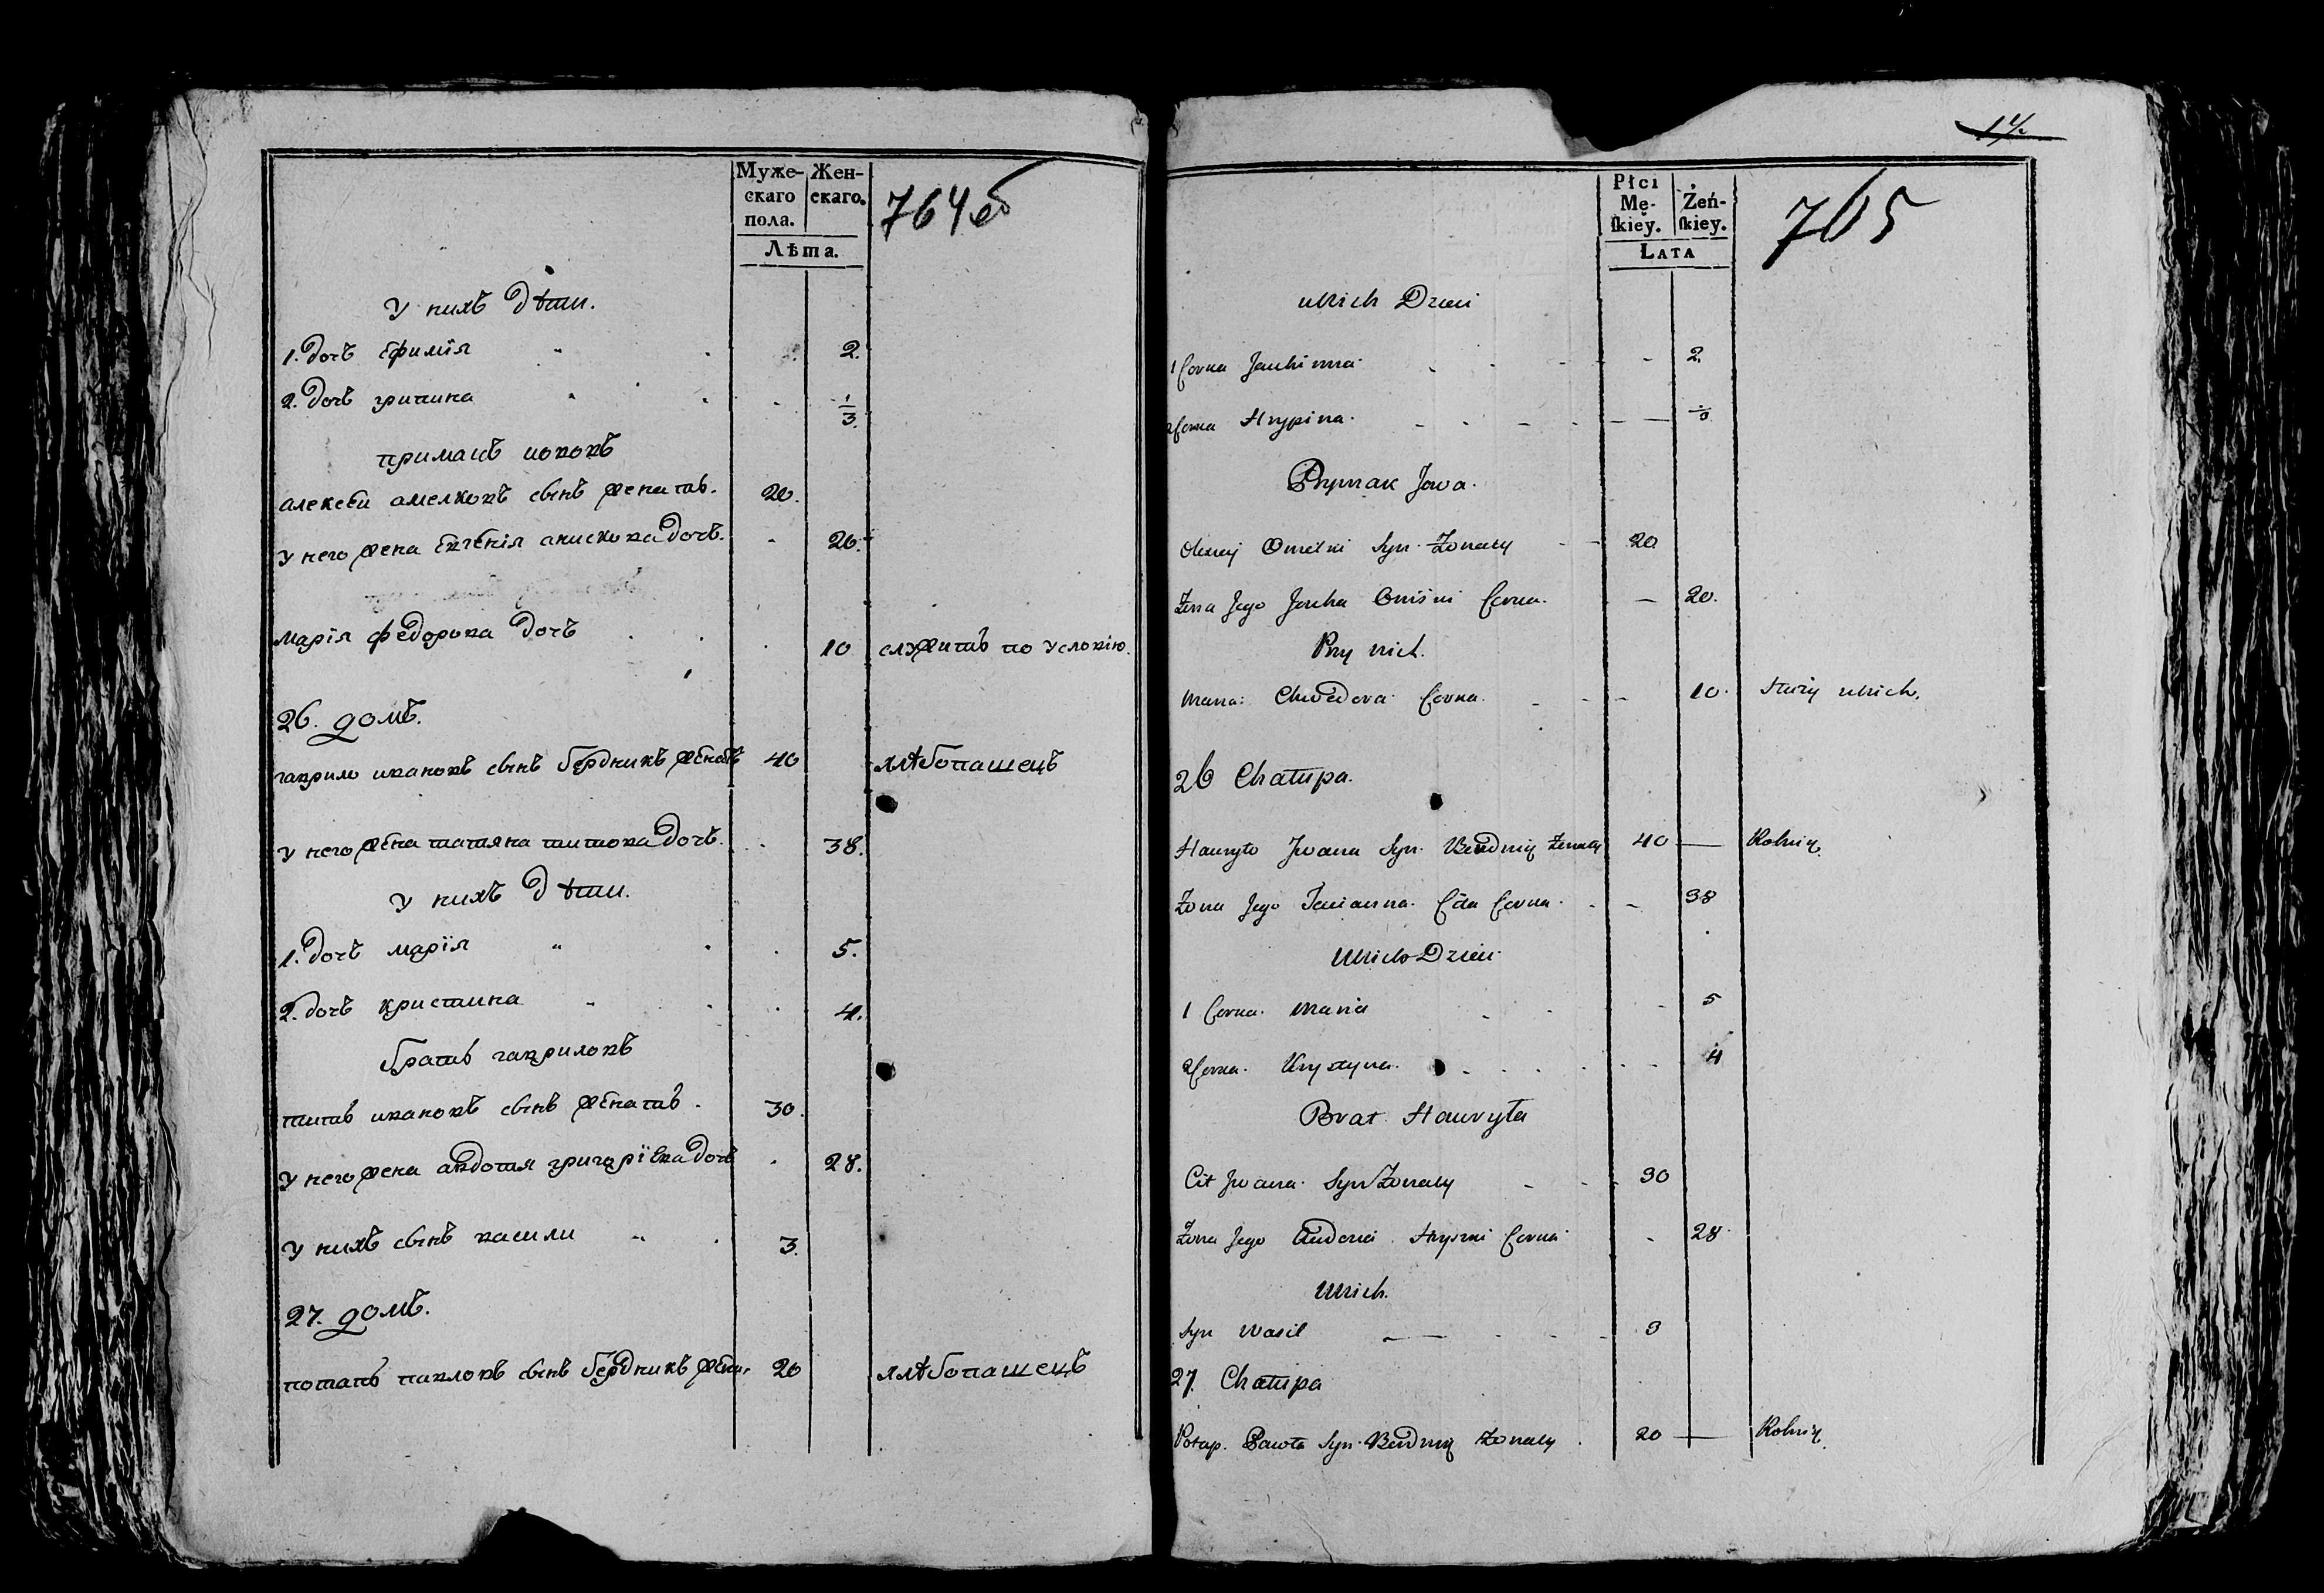 Муже-
скаго
пола.
Жен-
скаго.
Лѣта.
764об
У нихъ дѣти.
1. дочъ Ефимія 2.
2. дочъ грипина 1/3.
примакъ иововъ
алексѣи амелковъ сынъ женатъ. 20.
У него жена Евгенія анискова дочъ. 20.
Марія федорова дочъ 10 служитъ по Условію.
26. домъ.
гаврило ивановъ сынъ бердникъ женатъ 40 хлѣбопашецъ
У него жена татяна титова дочъ. 38.
У нихъ дѣти.
1. дочъ марїя 5.
2. дочъ христина 4.
братъ гавриловъ
титъ ивановъ сынъ женатъ. 30.
У него жена авдотия григорїева дочъ 28.
У нихъ сынъ васили 3.
27. домъ.
потапъ павловъ сынъ бердникъ жена. 20 хлѣбопашецъ
14
Płci
Mę-
ſkieÿ.
Żeń-
ſkiey.
LATA
765
u Nich Dzieci
1 Corka Jauhimia 2.
2 Corka Hrypina.
Prymak Jowa.
Olexiej Omelki Syn Zonaty 20
Zona Jego Jouha Oniśki Corka. 20.
Przy nich.
Maria Chwedora Corka. 10. Służy u Nich.
26 Chatupa.
Hauryło Jwana Syn Berdnik Zonaty 40 — Rolnik.
Zona Jego Tacianna Cita Corka. 38
U Nich Dzieci
1 Corka. Maria 5
2 Corka. Krystyna. 4
Brat Hauryła
Cit Jwana Syn Zonaty 30
Zona Jego Audocia Hryszki Corka 28
U Nich.
Syn Wasil 3
27. Chatupa
Potap. Pawła Syn Berdnik Zonaty 20 — Rolnik.